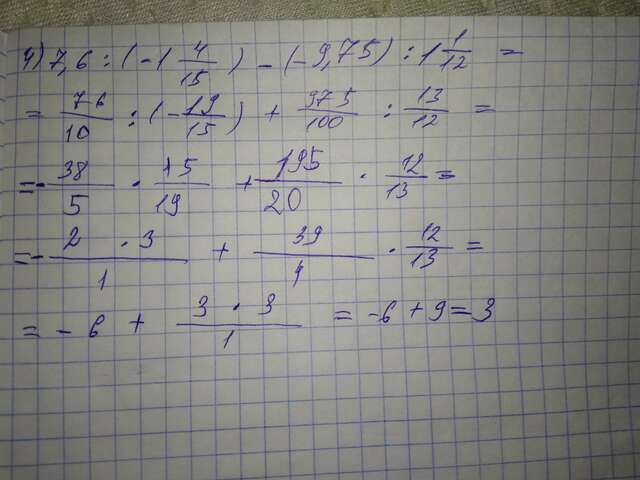 4) 7,6 : (-1 4/15) - (-9,75) : 1 1/12 =
= 76/10 : (-19/15) + 975/100 : 13/12 =
= - 38/5 · 15/19 + 195/20 · 12/13 =
= - 2 · 3/1 + 39/4 · 12/13 =
= - 6 + 3 · 3/1 = -6 + 9 = 3